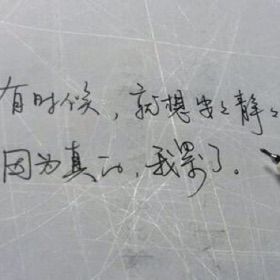 有时候，就想安安静静
因为真的，我累了。